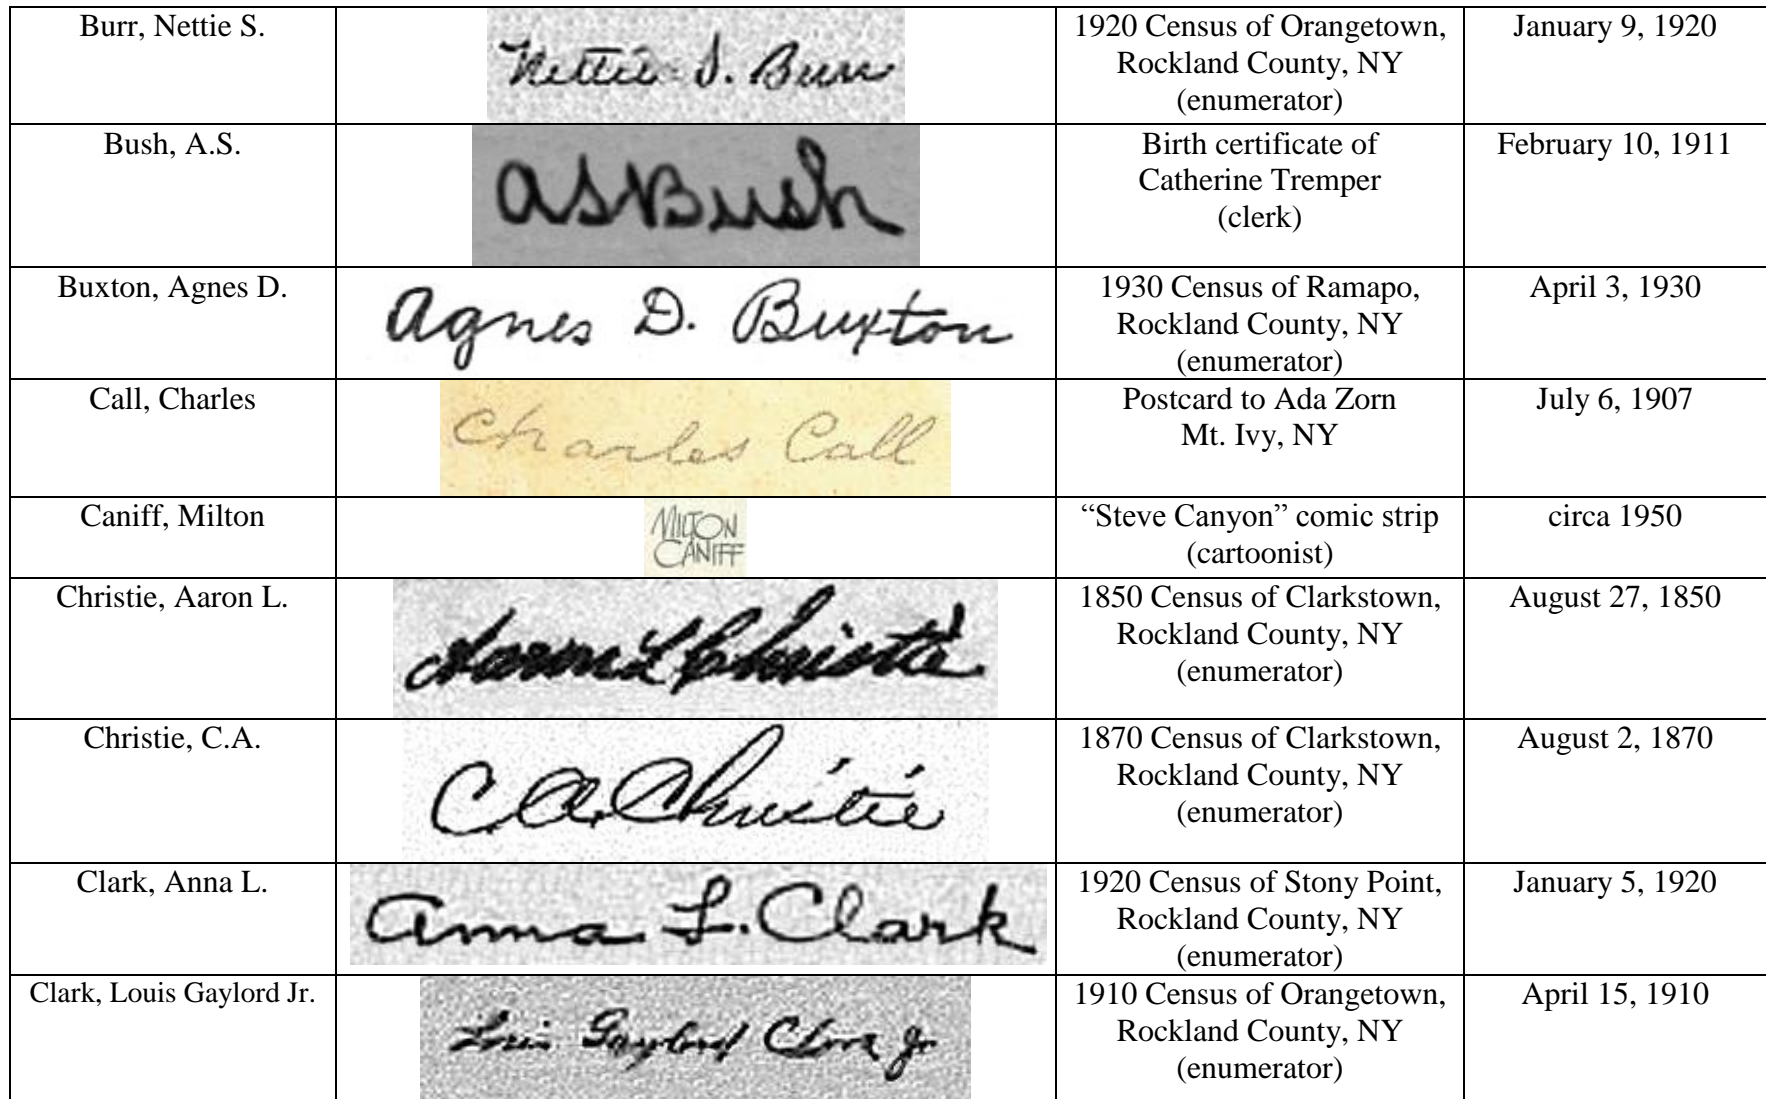 Burr, Nettie S.
Nettie S. Burr
1920 Census of Orangetown,
Rockland County, NY
(enumerator)
January 9, 1920
Bush, A.S.
ASBush
Birth certificate of
Catherine Tremper
(clerk)
February 10, 1911
Buxton, Agnes D.
Agnes D. Buxton
1930 Census of Ramapo,
Rockland County, NY
(enumerator)
April 3, 1930
Call, Charles
Charles Call
Postcard to Ada Zorn
Mt. Ivy, NY
July 6, 1907
Caniff, Milton
MILTON
CANIFF
“Steve Canyon” comic strip
(cartoonist)
circa 1950
Christie, Aaron L.
Aaron L Christie
1850 Census of Clarkstown,
Rockland County, NY
(enumerator)
August 27, 1850
Christie, C.A.
C.A. Christie
1870 Census of Clarkstown,
Rockland County, NY
(enumerator)
August 2, 1870
Clark, Anna L.
Anna L. Clark
1920 Census of Stony Point,
Rockland County, NY
(enumerator)
January 5, 1920
Clark, Louis Gaylord Jr.
Louis Gaylord Clark Jr
1910 Census of Orangetown,
Rockland County, NY
(enumerator)
April 15, 1910